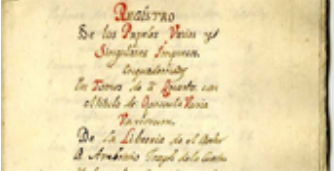 REGISTRO
De los Papeles Varios y
Singulares Impresos,
Enquadernados
En Tomos de à Quarto, con
el titulo de Opuscula Varia
Variorum.
De la Libreria de el Señor
D. Ambrosio Joseph de la Cuesta